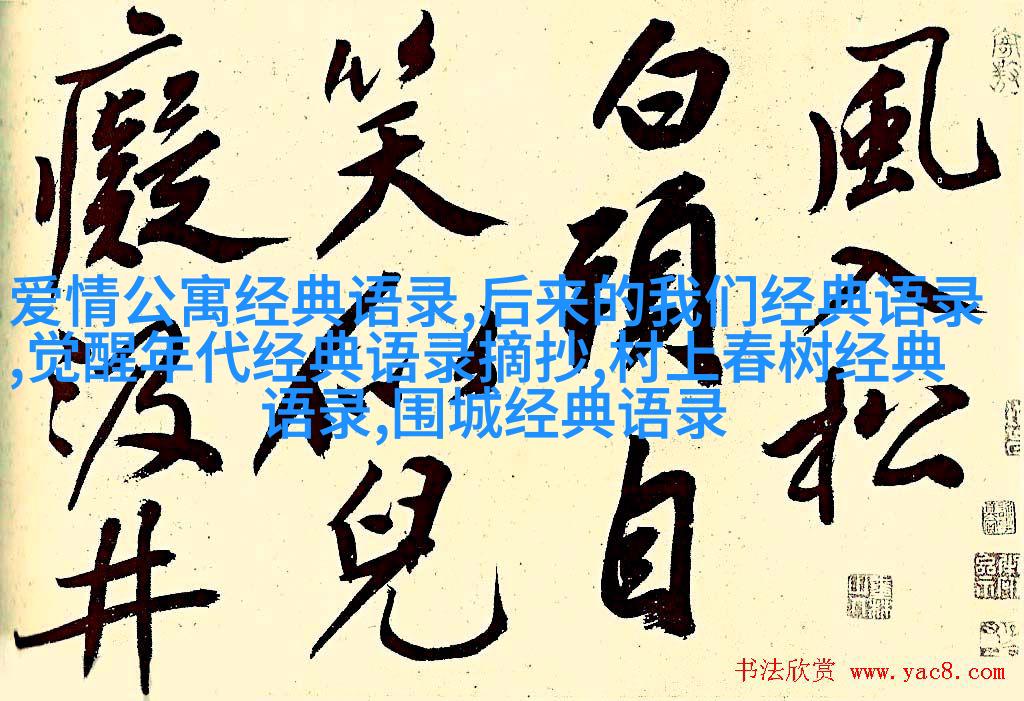 風入松
白頭自
笑兒
癡汲井
爱情公寓经典语录,后来的我们经典语录
,觉醒年代经典语录摘抄,村上春树经典
语录,围城经典语录
书法欣赏 www.yac8.com